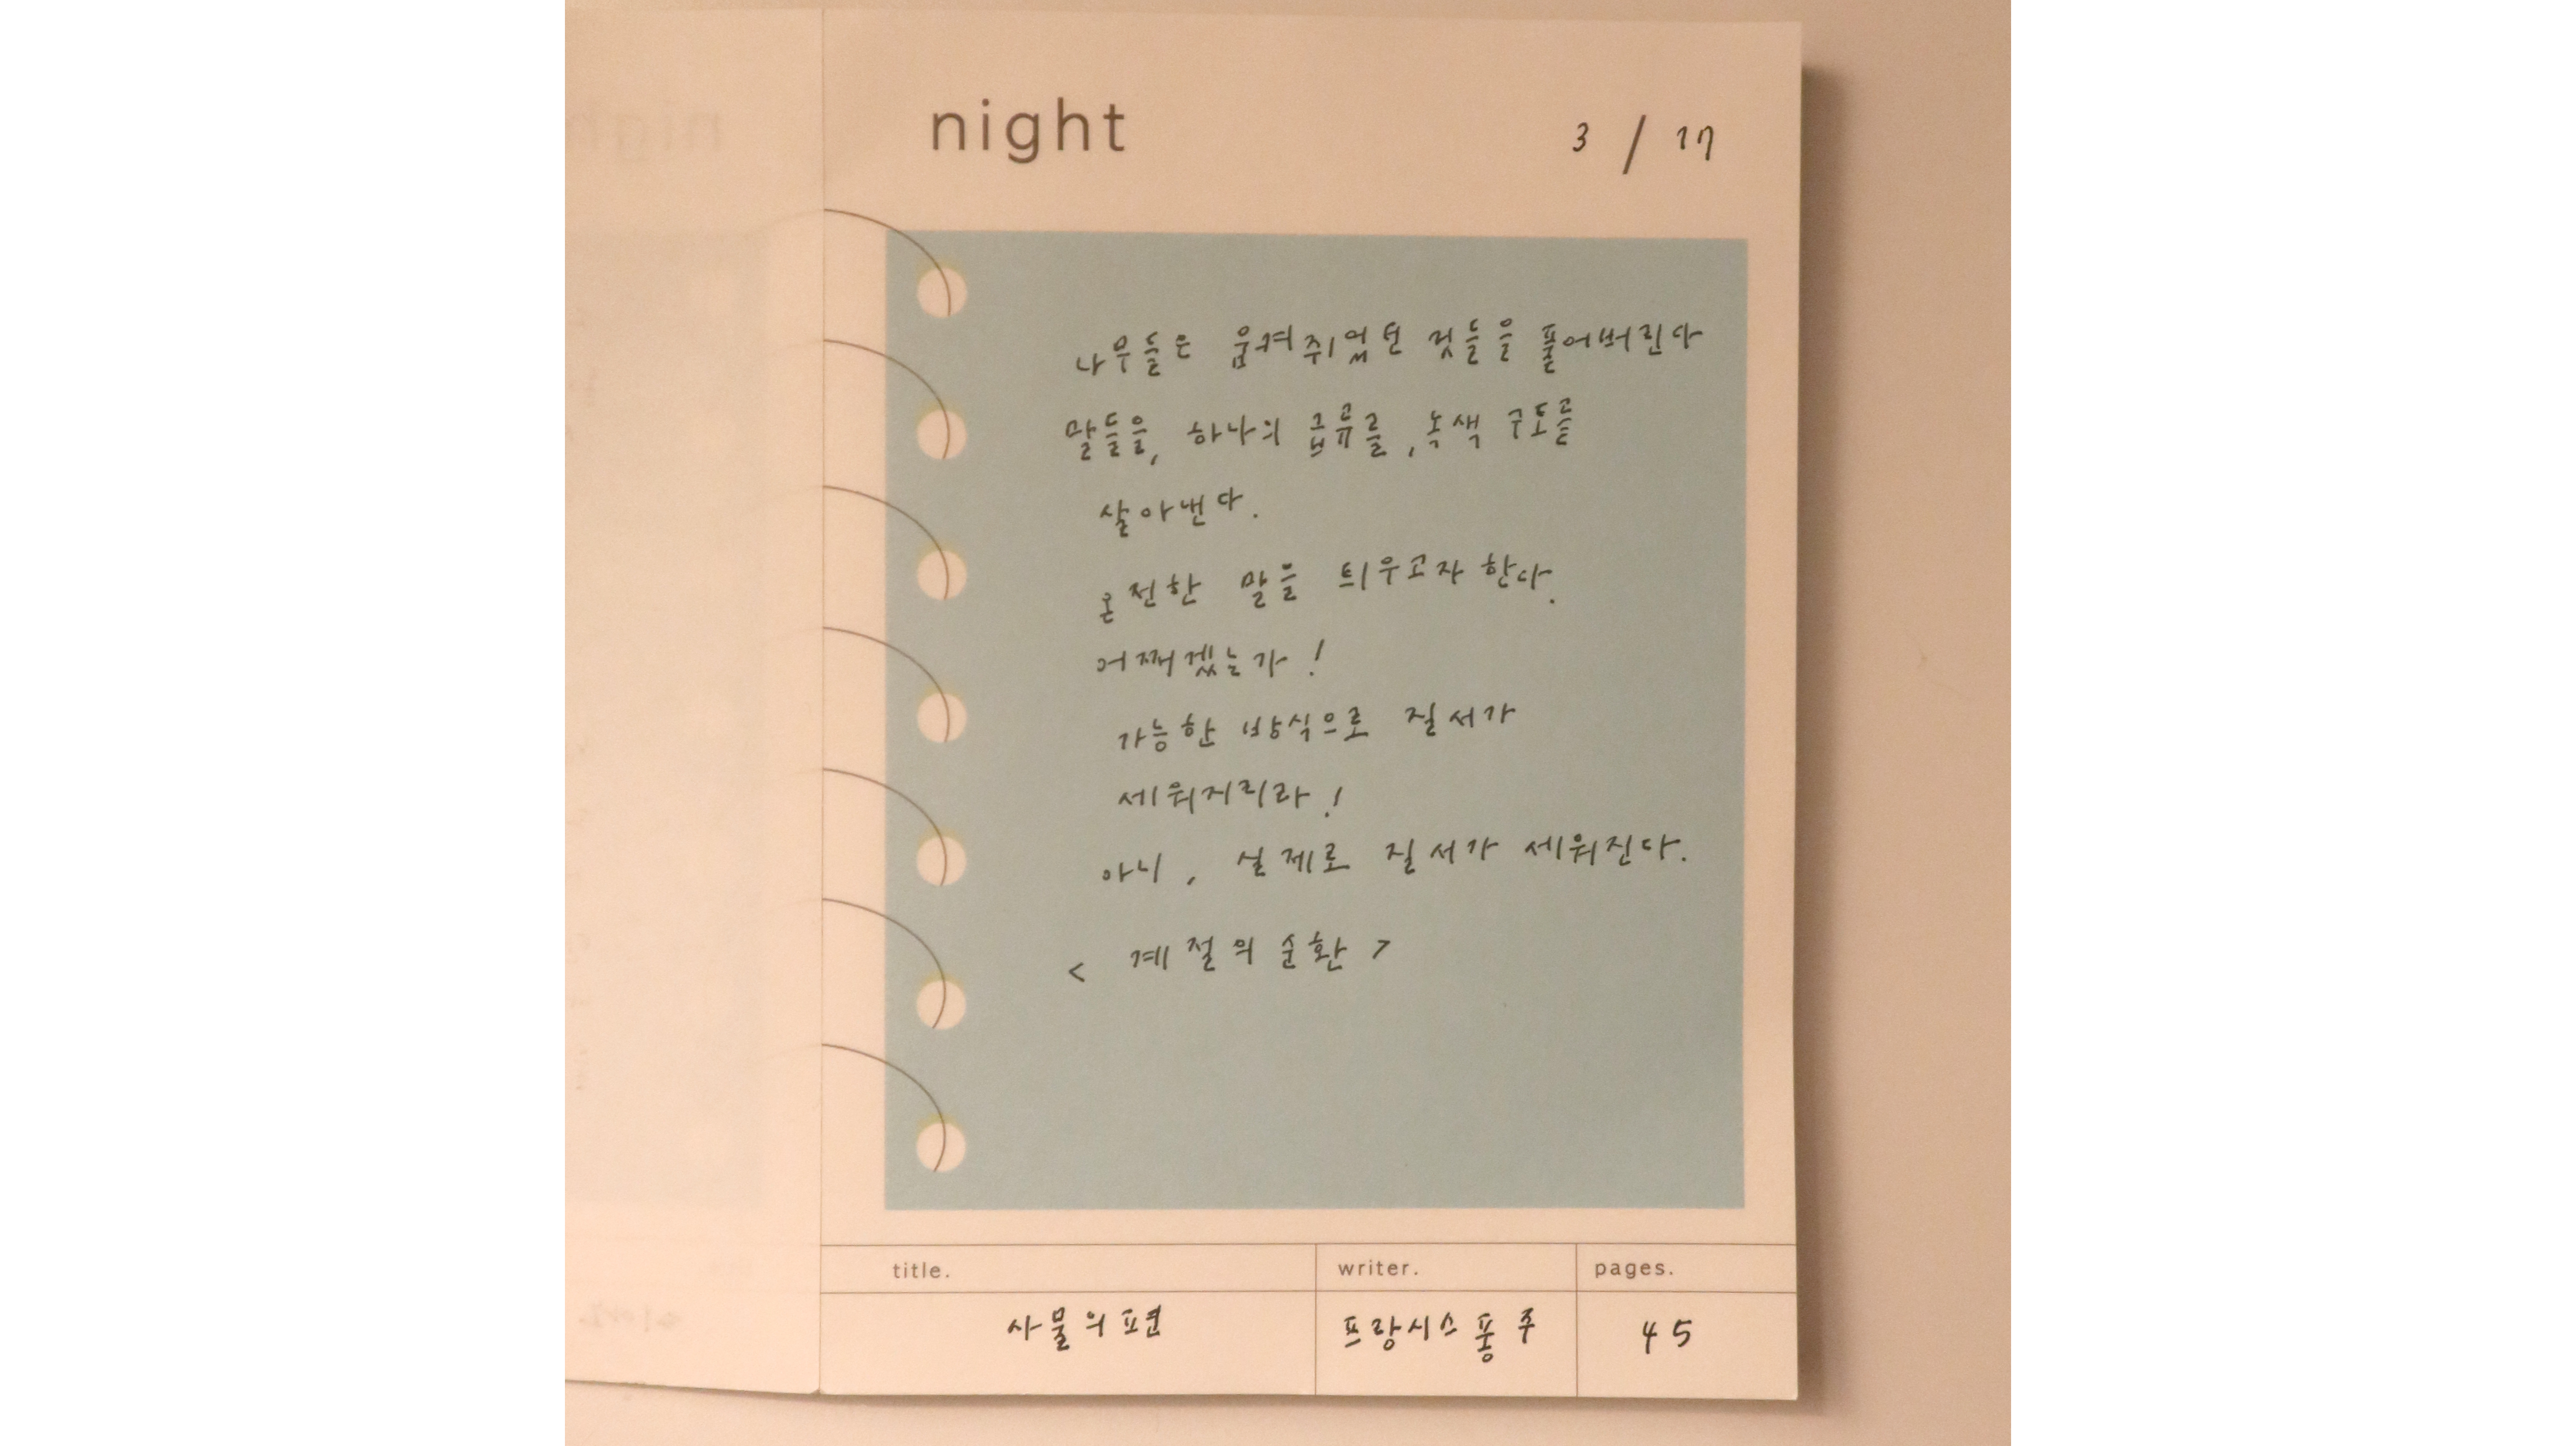 night
3 / 17
나무들은 움켜쥐었던 것들을 풀어버린다
말들을, 하나의 급류를, 녹색 구토를
살아낸다.
온전한 말을 틔우고자 한다.
어쩌겠는가!
가능한 방식으로 질서가
세워지리라!
아니, 실제로 질서가 세워진다.
< 계절의 순환 >
title. writer. pages.
사물의 편 프랑시스 퐁주 45